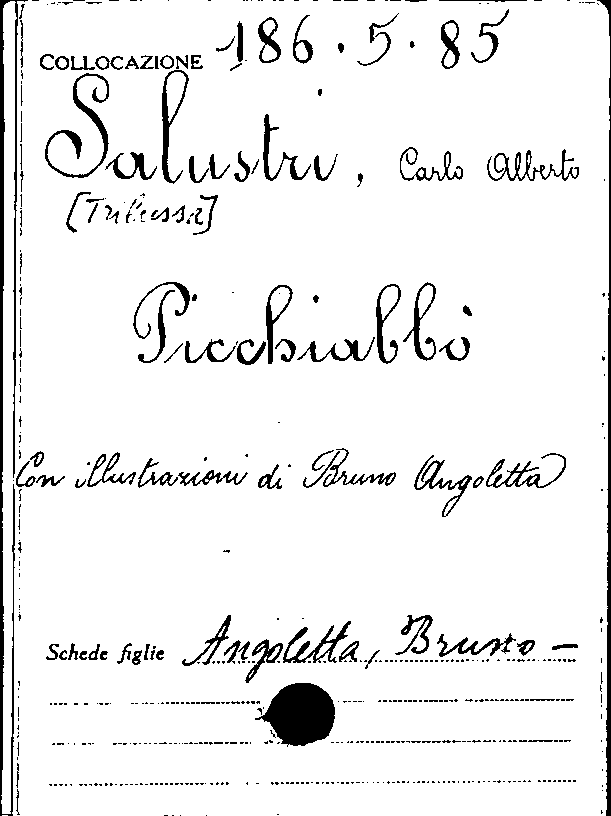 COLLOCAZIONE 186.5.85
Salustri, Carlo Alberto
[Trilussa]
Picchiabbò
Con illustrazioni di Bruno Angoletta
Schede figlie Angoletta, Bruno —